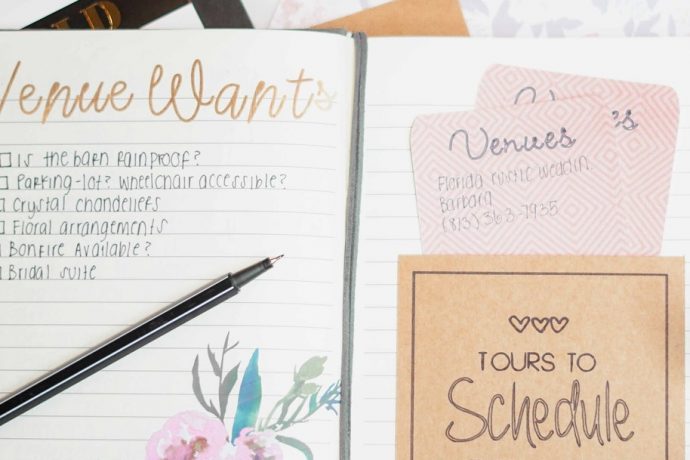 Venue Wants
Is the barn rainproof?
Parking-lot? wheelchair accessible?
Crystal chandeliers
Floral arrangements
Bonfire Available?
Bridal suite
Venues 's
Florida rustic weddin
Barbara
(813) 363-7935
TOURS TO
Schedule